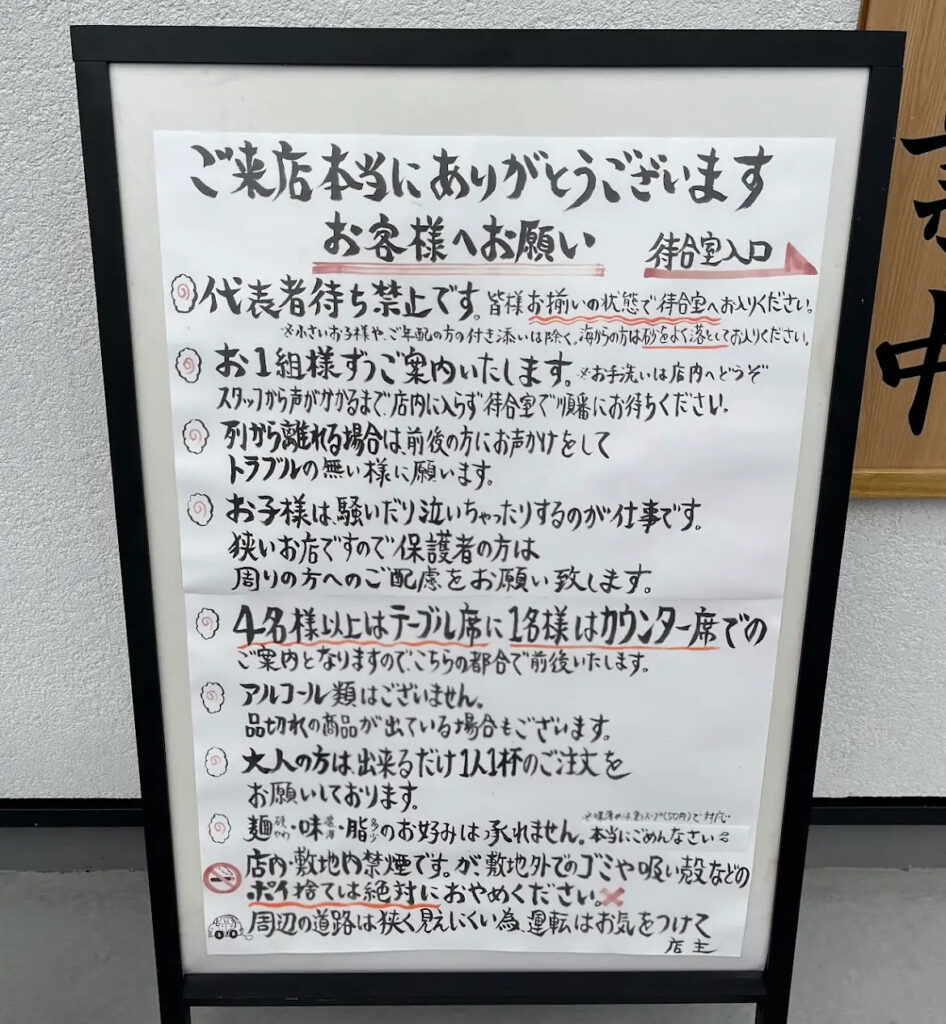 ご来店本当にありがとうございます
お客様へお願い
待合室入口
代表者待ち禁止です。皆様お揃いの状態で待合室へお入りください。
※小さいお子様や、ご年配の方の付き添いは除く。海からの方は砂をよく落としてお入りください。
お1組様ずつご案内いたします。※お手洗いは店内へどうぞ
スタッフから声がかかるまで、店内に入らず待合室で順番にお待ちください。
列から離れる場合は、前後の方にお声かけをして
トラブルの無い様に願います。
お子様は、騒いだり泣いちゃったりするのが仕事です。
狭いお店ですので保護者の方は
周りの方へのご配慮をお願い致します。
4名様以上はテーブル席に1名様はカウンター席での
ご案内となりますので、こちらの都合で前後いたします。
アルコール類はございません。
品切れの商品が出ている場合もございます。
大人の方は、出来るだけ1人1杯のご注文を
お願いしております。
※味薄めは、割りスープ(50円)で対応
麺硬やわ・味濃薄・脂多少のお好みは承れません。本当にごめんなさい
店内・敷地内禁煙です。が、敷地外でのゴミや吸い殻などの
ポイ捨ては絶対におやめください。
周辺の道路は狭く見えにくい為、運転はお気をつけて
店主
中